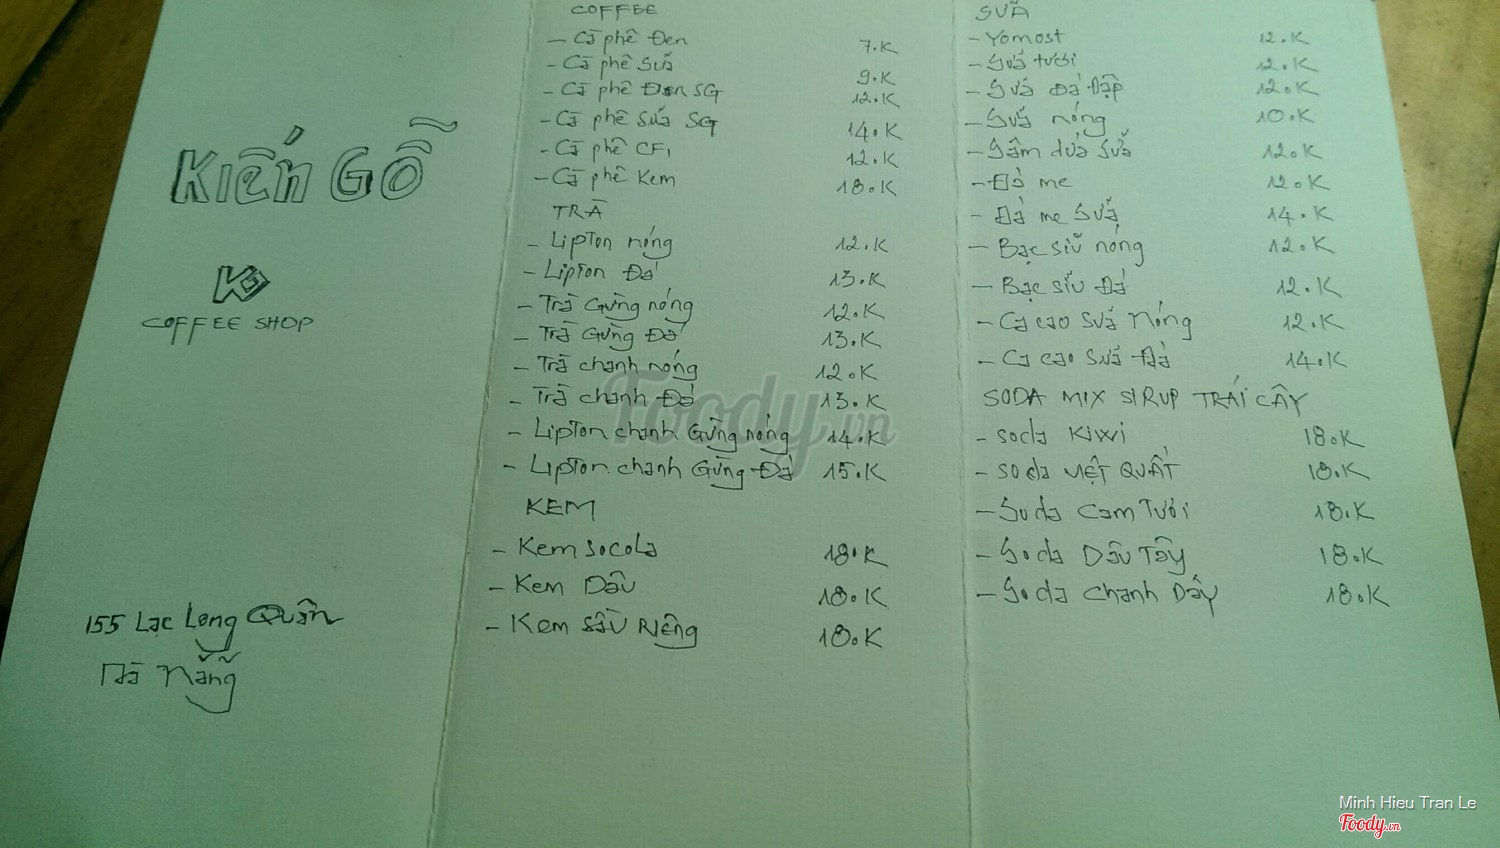 Kiến Gỗ
COFFEE SHOP
155 Lạc Long Quân
Đà Nẵng
COFFEE
- Cà phê Đen 7.K
- Cà phê Sữa 9.K
- Cà phê Đen SG 12.K
- Cà phê Sữa SG 14.K
- Cà phê CF1 12.K
- Cà phê Kem 18.K
TRÀ
- Lipton nóng 12.K
- Lipton Đá 13.K
- Trà Gừng nóng 12.K
- Trà Gừng Đá 13.K
- Trà chanh nóng 12.K
- Trà chanh Đá 13.K
- Lipton chanh Gừng nóng 14.K
- Lipton chanh Gừng Đá 15.K
KEM
- Kem Socola 18.K
- Kem Dâu 18.K
- Kem Sầu Riêng 18.K
SỮA
- Yomost 12.K
- Sữa tươi 12.K
- Sữa Đá Đập 12.K
- Sữa nóng 10.K
- Sâm dứa Sữa 12.K
- Đá me 12.K
- Đá me Sữa 14.K
- Bạc sỉu nóng 12.K
- Bạc sỉu Đá 12.K
- Ca cao Sữa Nóng 12.K
- Ca cao Sữa Đá 14.K
SODA MIX SIRUP TRÁI CÂY
- Soda Kiwi 18.K
- Soda VIỆT QUẤT 18.K
- Soda Cam Tươi 18.K
- Soda Dâu Tây 18.K
- Soda Chanh Dây 18.K
Foody.vn
Minh Hieu Tran Le
Foody.vn